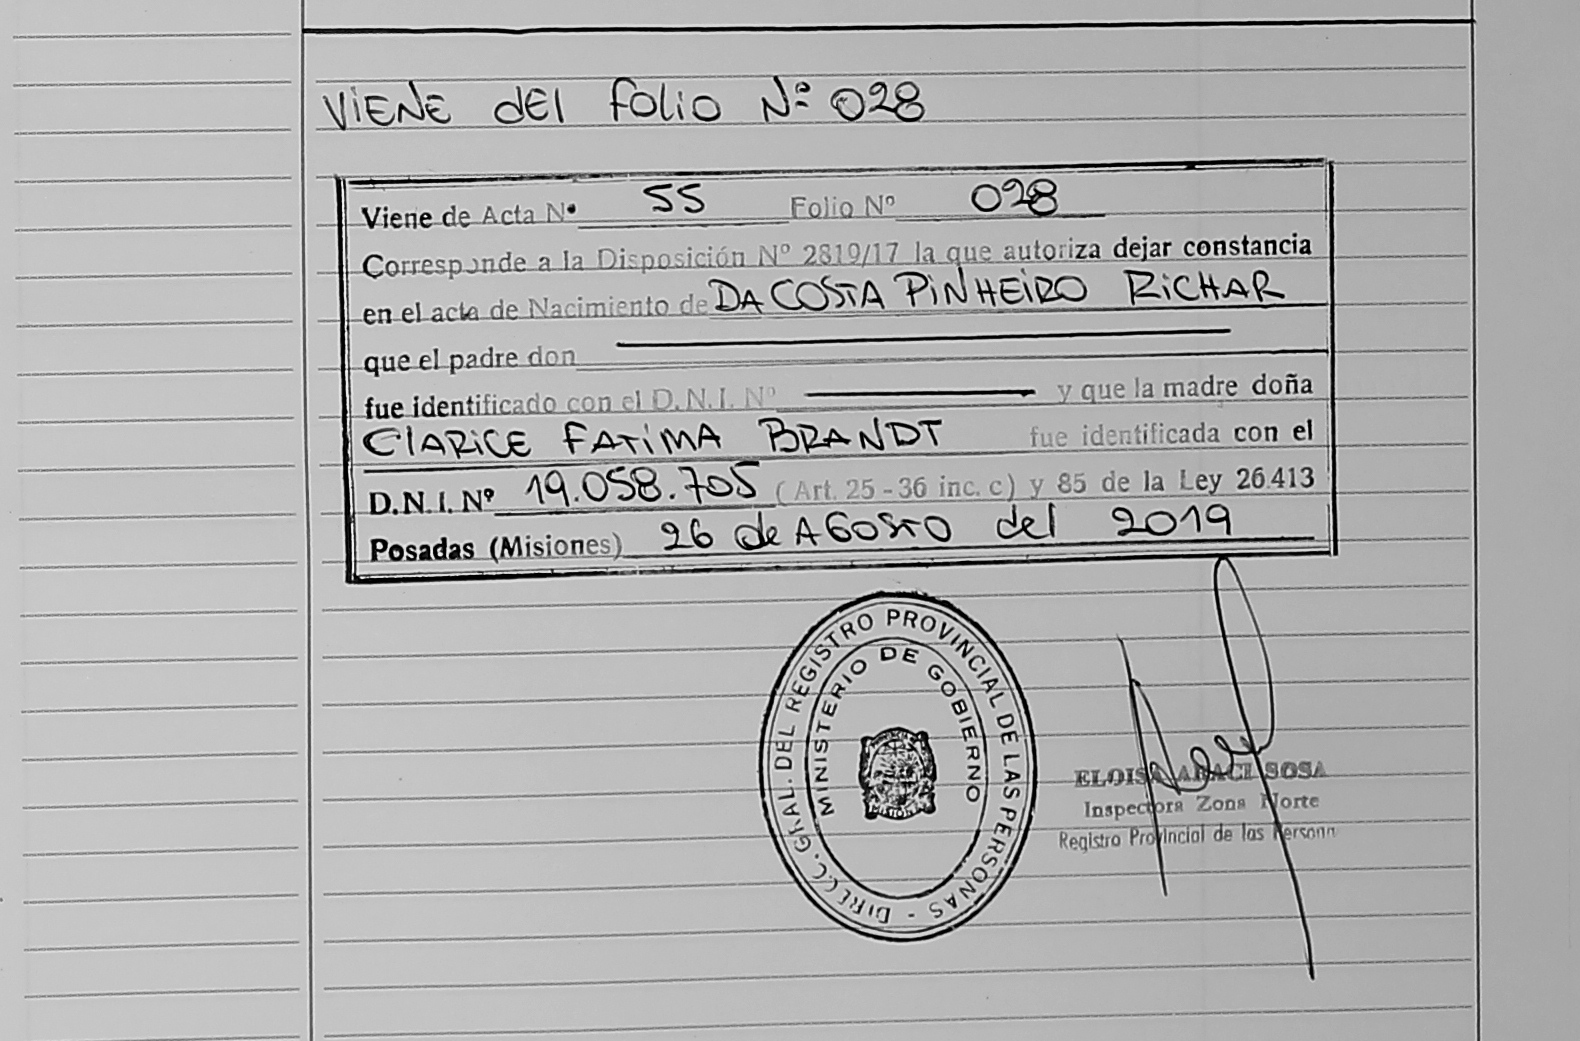 VIENE DEL FOLIO Nº 028
Viene de Acta Nº 55 Folio Nº 028
Corresponde a la Disposición Nº 2819/17 la que autoriza dejar constancia
en el acta de Nacimiento de DA COSTA PINHEIRO RICHAR
que el padre don
fue identificado con el D.N.I. Nº y que la madre doña
CLARICE FATIMA BRANDT fue identificada con el
D.N.I. Nº 19.058.705 (Art. 25-36 inc. c) y 85 de la Ley 26.413
Posadas (Misiones) 26 de AGOSTO del 2019
DIRECC. GRAL. DEL REGISTRO PROVINCIAL DE LAS PERSONAS -
MINISTERIO DE GOBIERNO
ELOISA ARACI SOSA
Inspectora Zona Norte
Registro Provincial de las Personas